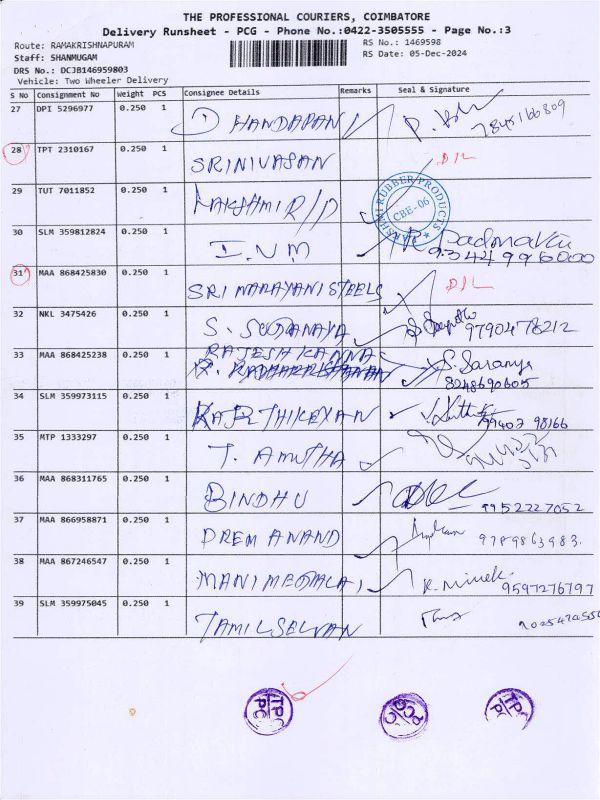 THE PROFESSIONAL COURIERS, COIMBATORE
Delivery Runsheet - PCG - Phone No.:0422-3505555 - Page No.:3
Route: RAMAKRISHNAPURAM
RS No.: 1469598
Staff: SHANMUGAM
RS Date: 05-Dec-2024
DRS No.: DCJB146959803
Vehicle: Two Wheeler Delivery
S No Consignment No Weight PCS Consignee Details Remarks Seal & Signature
27 DPI 5296977 0.250 1 DHANDAPANI 7845166809
28 TPT 2310167 0.250 1 SRINIVASAN D/L
29 TUT 7011852 0.250 1 LAKSHMI R/P LAKSHMI RUBBER PRODUCTS CBE-06
30 SLM 359812824 0.250 1 I.N.M 9344996000
31 MAA 868425830 0.250 1 SRI NARAYANI STEELS D/L
32 NKL 3475426 0.250 1 9790478212
33 MAA 868425238 0.250 1 RAJESH KANNA S. Saranya 8248690605
34 SLM 359973115 0.250 1 KARTHIKEYAN 99403 98166
35 MTP 1333297 0.250 1 T. AMUTHA
36 MAA 868311765 0.250 1 BINDHU 9952227052
37 MAA 866958871 0.250 1 PREM ANAND 9789863983
38 MAA 867246547 0.250 1 MANIMEGALAI 9597276797
39 SLM 359975045 0.250 1 TAMILSELVAN
TPC PCG TPC